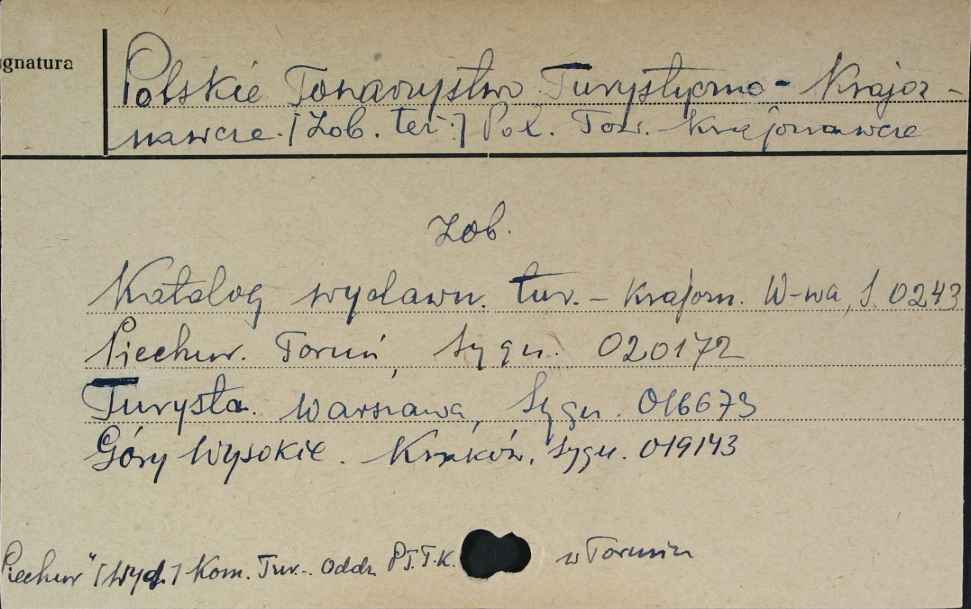 ygnatura
Polskie Towarzystwo Turystyczno - Krajoz-
nawcze. [Zob. też:] Pol. Tow. Krajoznawcze
Zob.
Katalog wydawn. tur. - krajozn. W-wa, S. 0243
Piechur. Toruń, Sygn. 020172
Turysta. Warszawa, Sygn. 016673
Góry Wysokie. Kraków. Sygn. 019143
Piechur" [Wyd.] Kom. Tur. Oddz. P.T.T.K. w Toruniu